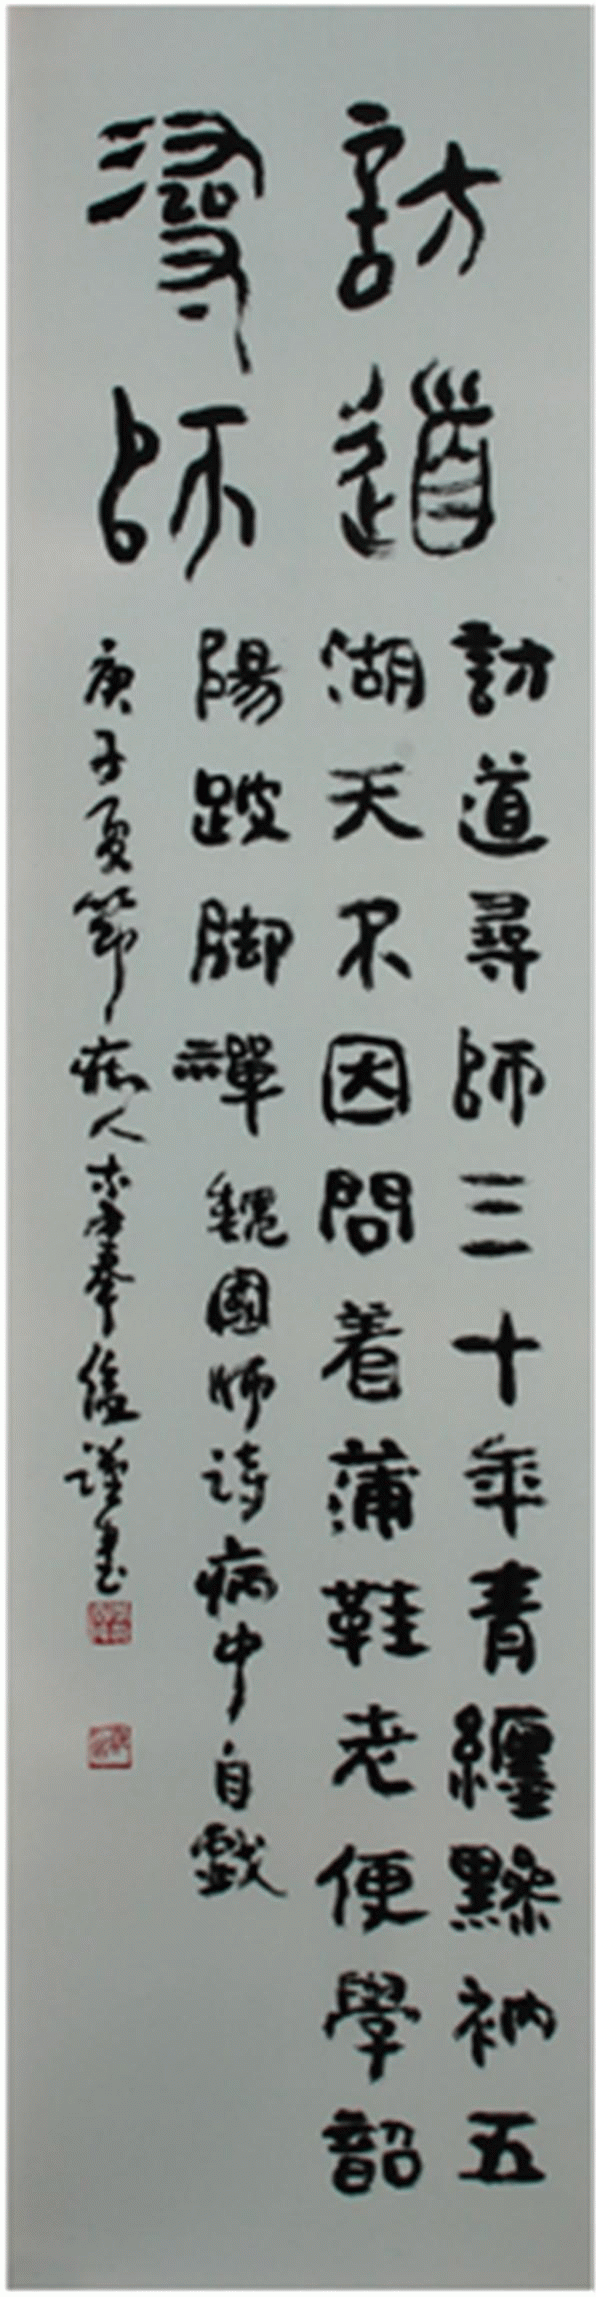 訪道
尋師
訪道尋師三十年青纏黲衲五
湖天不因問着蒲鞋老便學韶
陽跛脚禪魏國師诗病中自戲
庚子夏節人谨書